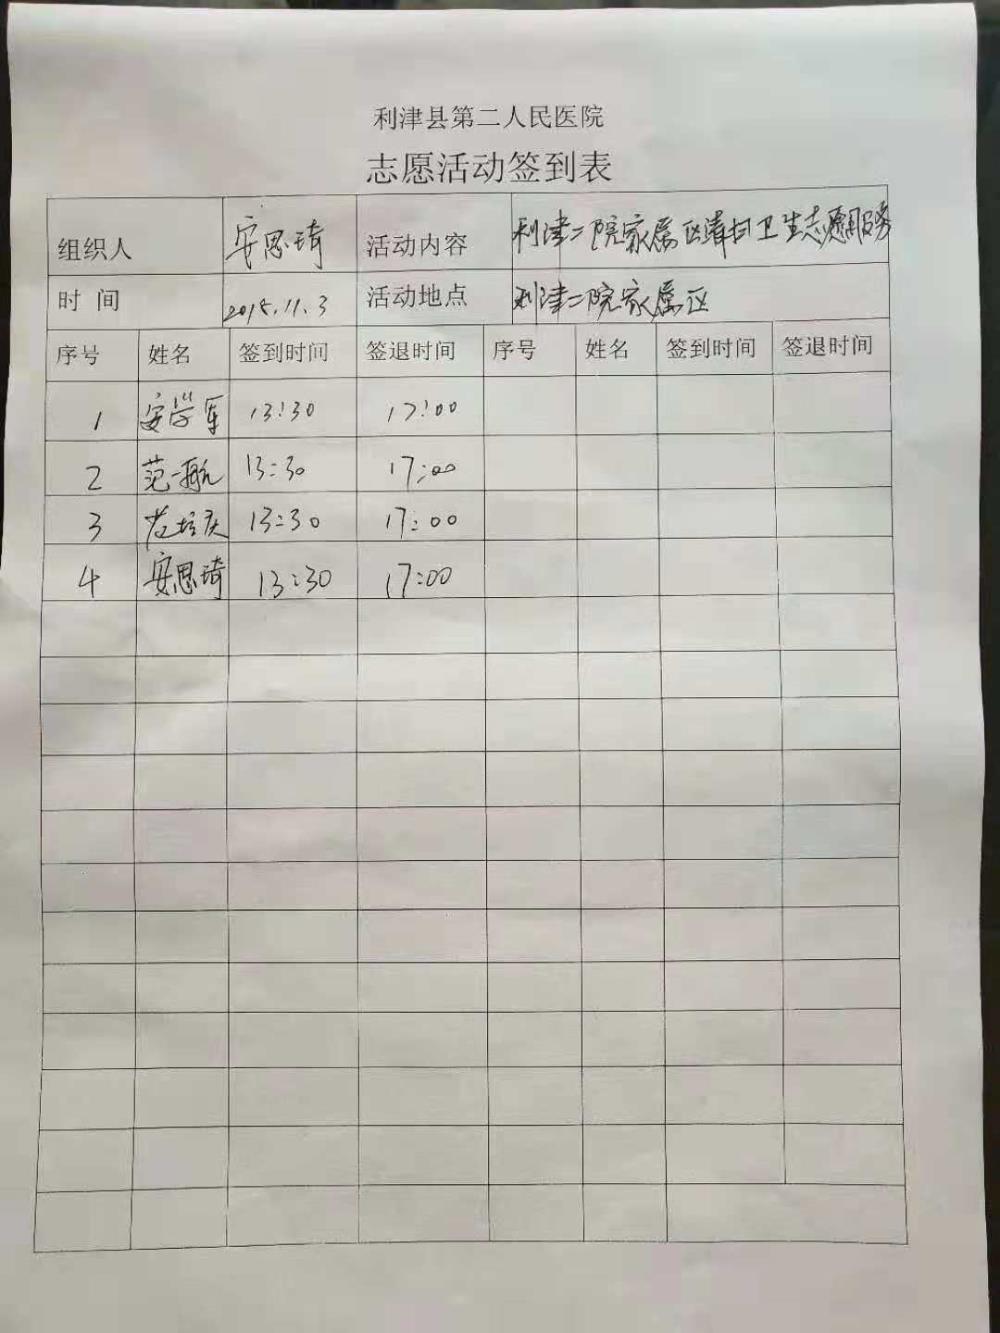 利津县第二人民医院
志愿活动签到表
组织人 安思琦 活动内容 利津二院家属区清扫卫生志愿服务
时 间 2018.11.3 活动地点 利津二院家属区
序号 姓名 签到时间 签退时间 序号 姓名 签到时间 签退时间
1 安学军 13:30 17:00
2 范一航 13:30 17:00
3 13:30 17:00
4 安思琦 13:30 17:00